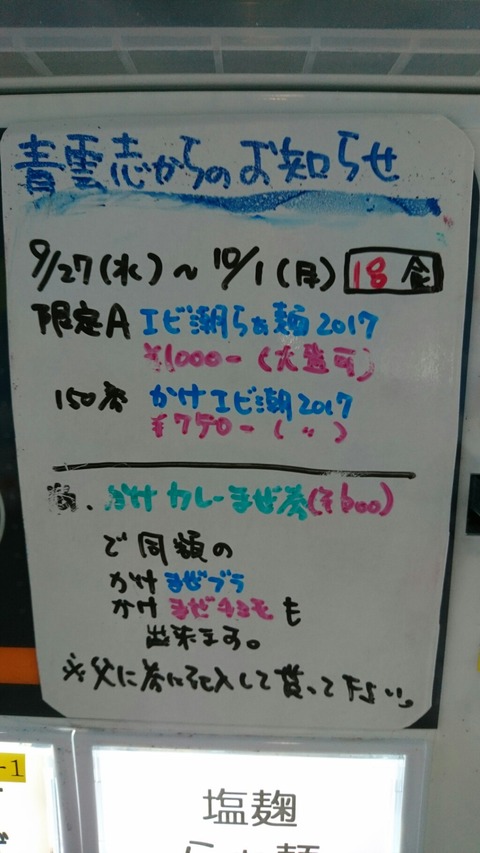 青雲志からのお知らせ
9/27(水)~10/1(月) 18食
限定A エビ潮らぁ麺2017
¥1000-(大盛可)
150券 かけエビ潮2017
¥750-(〃)
かけカレーまぜ券(¥600)
で同額の
かけまぜブラ
かけまぜチミモも
出来ます。
※父に券に記入して貰って下さい。
-1
塩麹
らぁ麺